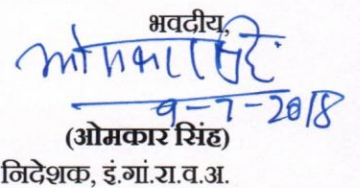 भवदीय,
ओमकार सिंह
9-7-2018
(ओमकार सिंह)
निदेशक, इं.गां.रा.व.अ.